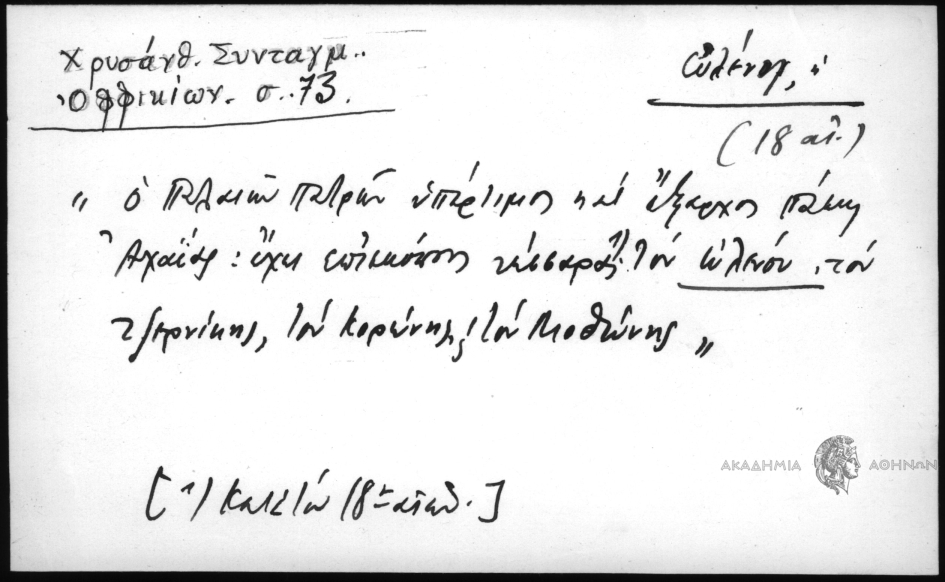 Χρυσάνθ. Συνταγμ..
Ὀφφικίων. σ..73.
Ὠλένη, ἡ
(18 αἰ.)
" ὁ Παλαιῶν Πατρῶν ὑπέρτιμος καὶ ἔξαρχος πάσης
Ἀχαΐας: ἔχει ἐπισκόπους τέσσαρας¹⁾ τὸν Ὠλένου, τὸν
τζερνίκης, τὸν Κορώνης, τὸν Μοθώνης "
[¹) Κατὰ τὸν 18ον αἰῶνα.]
ΑΚΑΔΗΜΙΑ ΑΘΗΝΩΝ